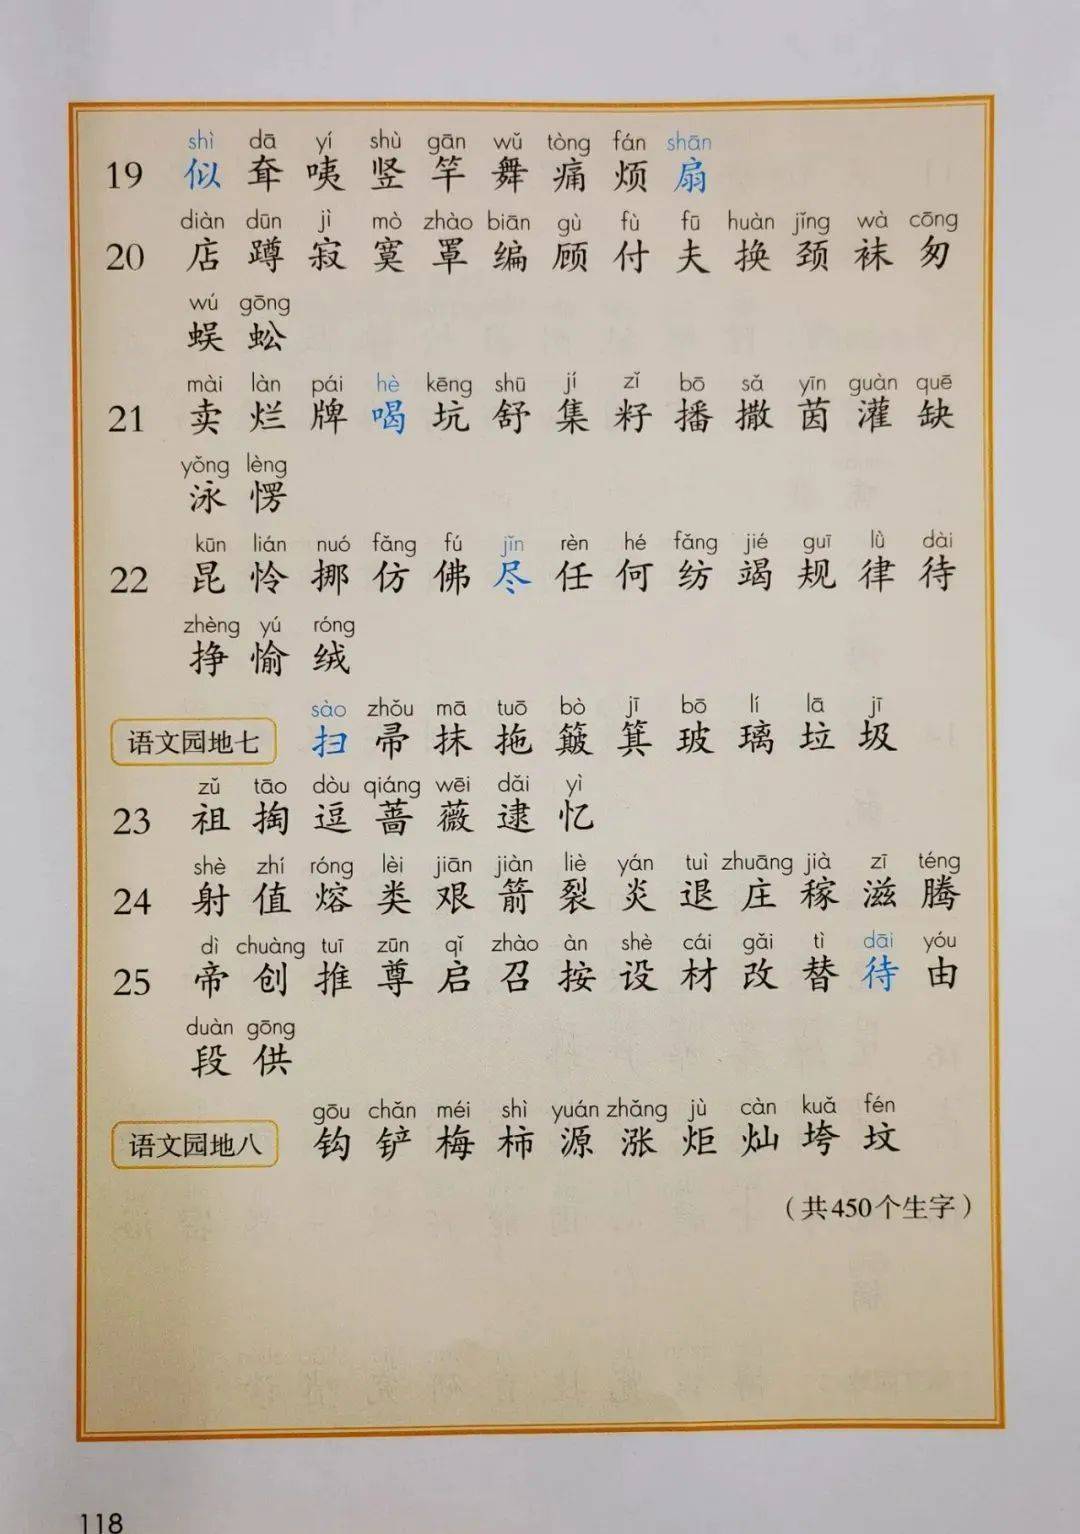 shì dā yí shù gān wǔ tòng fán shān
19 似 耷 咦 竖 竿 舞 痛 烦 扇
diàn dūn jì mò zhào biān gù fù fū huàn jǐng wà cōng
20 店 蹲 寂 寞 罩 编 顾 付 夫 换 颈 袜 匆
wú gōng
蜈 蚣
mài làn pái hè kēng shū jí zǐ bō sǎ yīn guàn quē
21 卖 烂 牌 喝 坑 舒 集 籽 播 撒 茵 灌 缺
yǒng lèng
泳 愣
kūn lián nuó fǎng fú jǐn rèn hé fǎng jié guī lǜ dài
22 昆 怜 挪 仿 佛 尽 任 何 纺 竭 规 律 待
zhèng yú róng
挣 愉 绒
sào zhǒu mā tuō bò jī bō lí lā jī
语文园地七 扫 帚 抹 拖 簸 箕 玻 璃 垃 圾
zǔ tāo dòu qiáng wēi dǎi yì
23 祖 掏 逗 蔷 薇 逮 忆
shè zhí róng lèi jiān jiàn liè yán tuì zhuāng jià zī téng
24 射 值 熔 类 艰 箭 裂 炎 退 庄 稼 滋 腾
dì chuàng tuī zūn qǐ zhào àn shè cái gǎi tì dāi yóu
25 帝 创 推 尊 启 召 按 设 材 改 替 待 由
duàn gōng
段 供
gōu chǎn méi shì yuán zhǎng jù càn kuǎ fén
语文园地八 钩 铲 梅 柿 源 涨 炬 灿 垮 坟
（共450个生字）
118